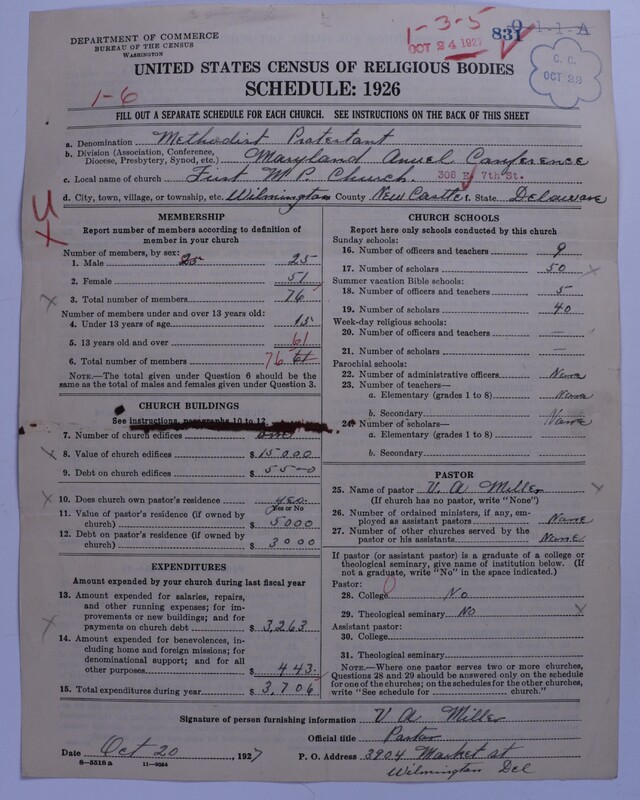 DEPARTMENT OF COMMERCE
BUREAU OF THE CENSUS
WASHINGTON
1-3-5
OCT 24 1927
831
0 1-1-A
C. C.
OCT 28
UNITED STATES CENSUS OF RELIGIOUS BODIES
SCHEDULE: 1926
1-6
FILL OUT A SEPARATE SCHEDULE FOR EACH CHURCH. SEE INSTRUCTIONS ON THE BACK OF THIS SHEET
a. Denomination Methodist Protestant
b. Division (Association, Conference, Diocese, Presbytery, Synod, etc.) Maryland Anuel Conference
c. Local name of church First M P. Church. 308 E. 7th St.
d. City, town, village, or township, etc. Wilmington County New Castle f. State Delaware
MEMBERSHIP
Report number of members according to definition of member in your church
Number of members, by sex:
1. Male 25 25
2. Female 51
3. Total number of members 76
Number of members under and over 13 years old:
4. Under 13 years of age 15
5. 13 years old and over 61
6. Total number of members 76 61
NOTE.—The total given under Question 6 should be the same as the total of males and females given under Question 3.
CHURCH BUILDINGS
See instructions, paragraphs 10 to 12
7. Number of church edifices one
8. Value of church edifices $ 15000
9. Debt on church edifices $ 5500
10. Does church own pastor's residence yes
Yes or No
11. Value of pastor's residence (if owned by church) $ 5000
12. Debt on pastor's residence (if owned by church) $ 3000
EXPENDITURES
Amount expended by your church during last fiscal year
13. Amount expended for salaries, repairs, and other running expenses; for improvements or new buildings; and for payments on church debt $ 3,263
14. Amount expended for benevolences, including home and foreign missions; for denominational support; and for all other purposes $ 443
15. Total expenditures during year $ 3,706
CHURCH SCHOOLS
Report here only schools conducted by this church
Sunday schools:
16. Number of officers and teachers 9
17. Number of scholars 50
Summer vacation Bible schools:
18. Number of officers and teachers 5
19. Number of scholars 40
Week-day religious schools:
20. Number of officers and teachers —
21. Number of scholars —
Parochial schools:
22. Number of administrative officers None
23. Number of teachers—
a. Elementary (grades 1 to 8) None
b. Secondary None
24. Number of scholars—
a. Elementary (grades 1 to 8)
b. Secondary
PASTOR
25. Name of pastor V. A Miller
(If church has no pastor, write "None")
26. Number of ordained ministers, if any, employed as assistant pastors None
27. Number of other churches served by the pastor or his assistants None
If pastor (or assistant pastor) is a graduate of a college or theological seminary, give name of institution below. (If not a graduate, write "No" in the space indicated.)
Pastor:
28. College No
29. Theological seminary No
Assistant pastor:
30. College
31. Theological seminary
NOTE.—Where one pastor serves two or more churches, Questions 28 and 29 should be answered only on the schedule for one of the churches; on the schedules for the other churches, write "See schedule for church."
Signature of person furnishing information V A Miller
Official title Pastor
Date Oct 20, 1927 P. O. Address 3904 Market st
Wilmington Del
8-5518a 11-9064